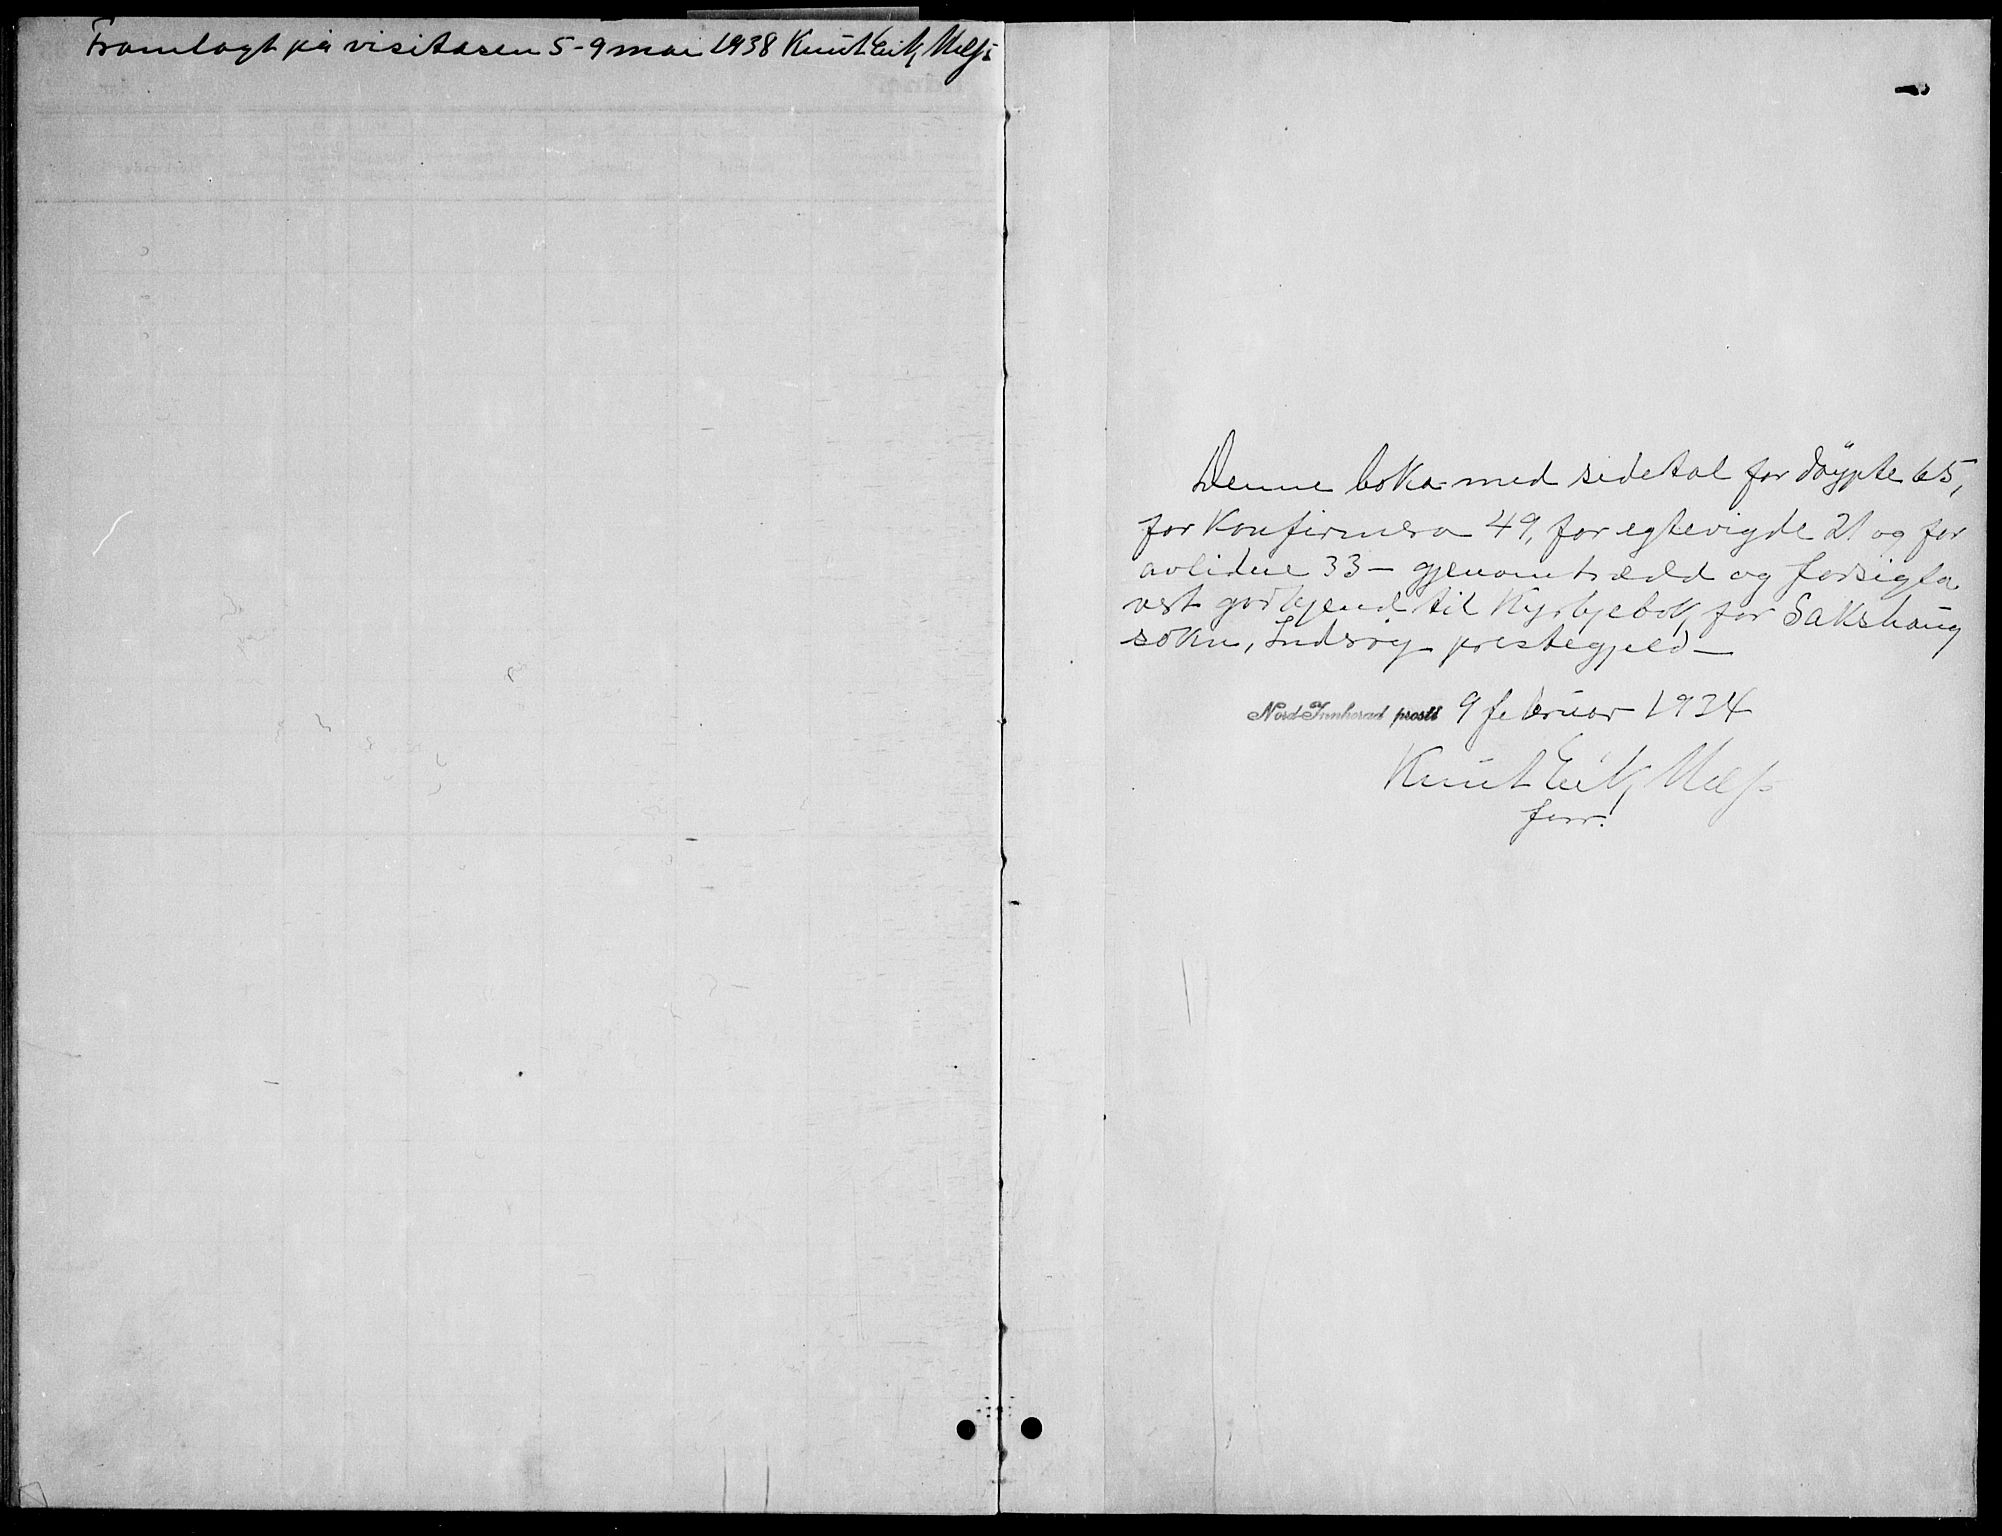 Framlagt på visitasen 5-9 mai 1938 Knut Eirik
Denne boka med sidetal for døypte 65,
for Konfirmera 49, for egtevigde 21 og for
avlidne 33 – gjenomtrædd og forsigla
vert godkjend til Kyrkjebok for Sakshaug
sokn, Inderøy prestegjeld –
Nord-Innherad prosti 9 februar 1924
Knut Eirik